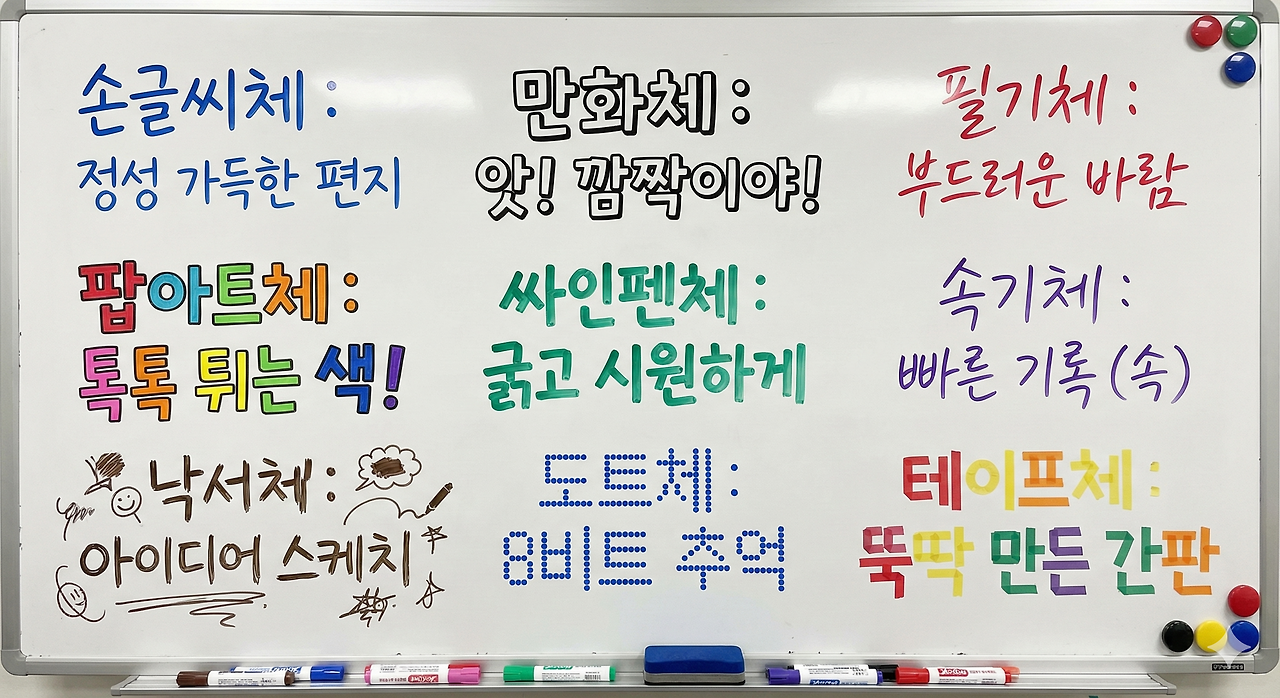 손글씨체 :
정성 가득한 편지
만화체 :
앗! 깜짝이야!
필기체 :
부드러운 바람
팝아트체 :
톡톡 튀는 색!
싸인펜체 :
굵고 시원하게
속기체 :
빠른 기록 (속)
낙서체 :
아이디어 스케치
도트체 :
8비트 추억
테이프체 :
뚝딱 만든 간판